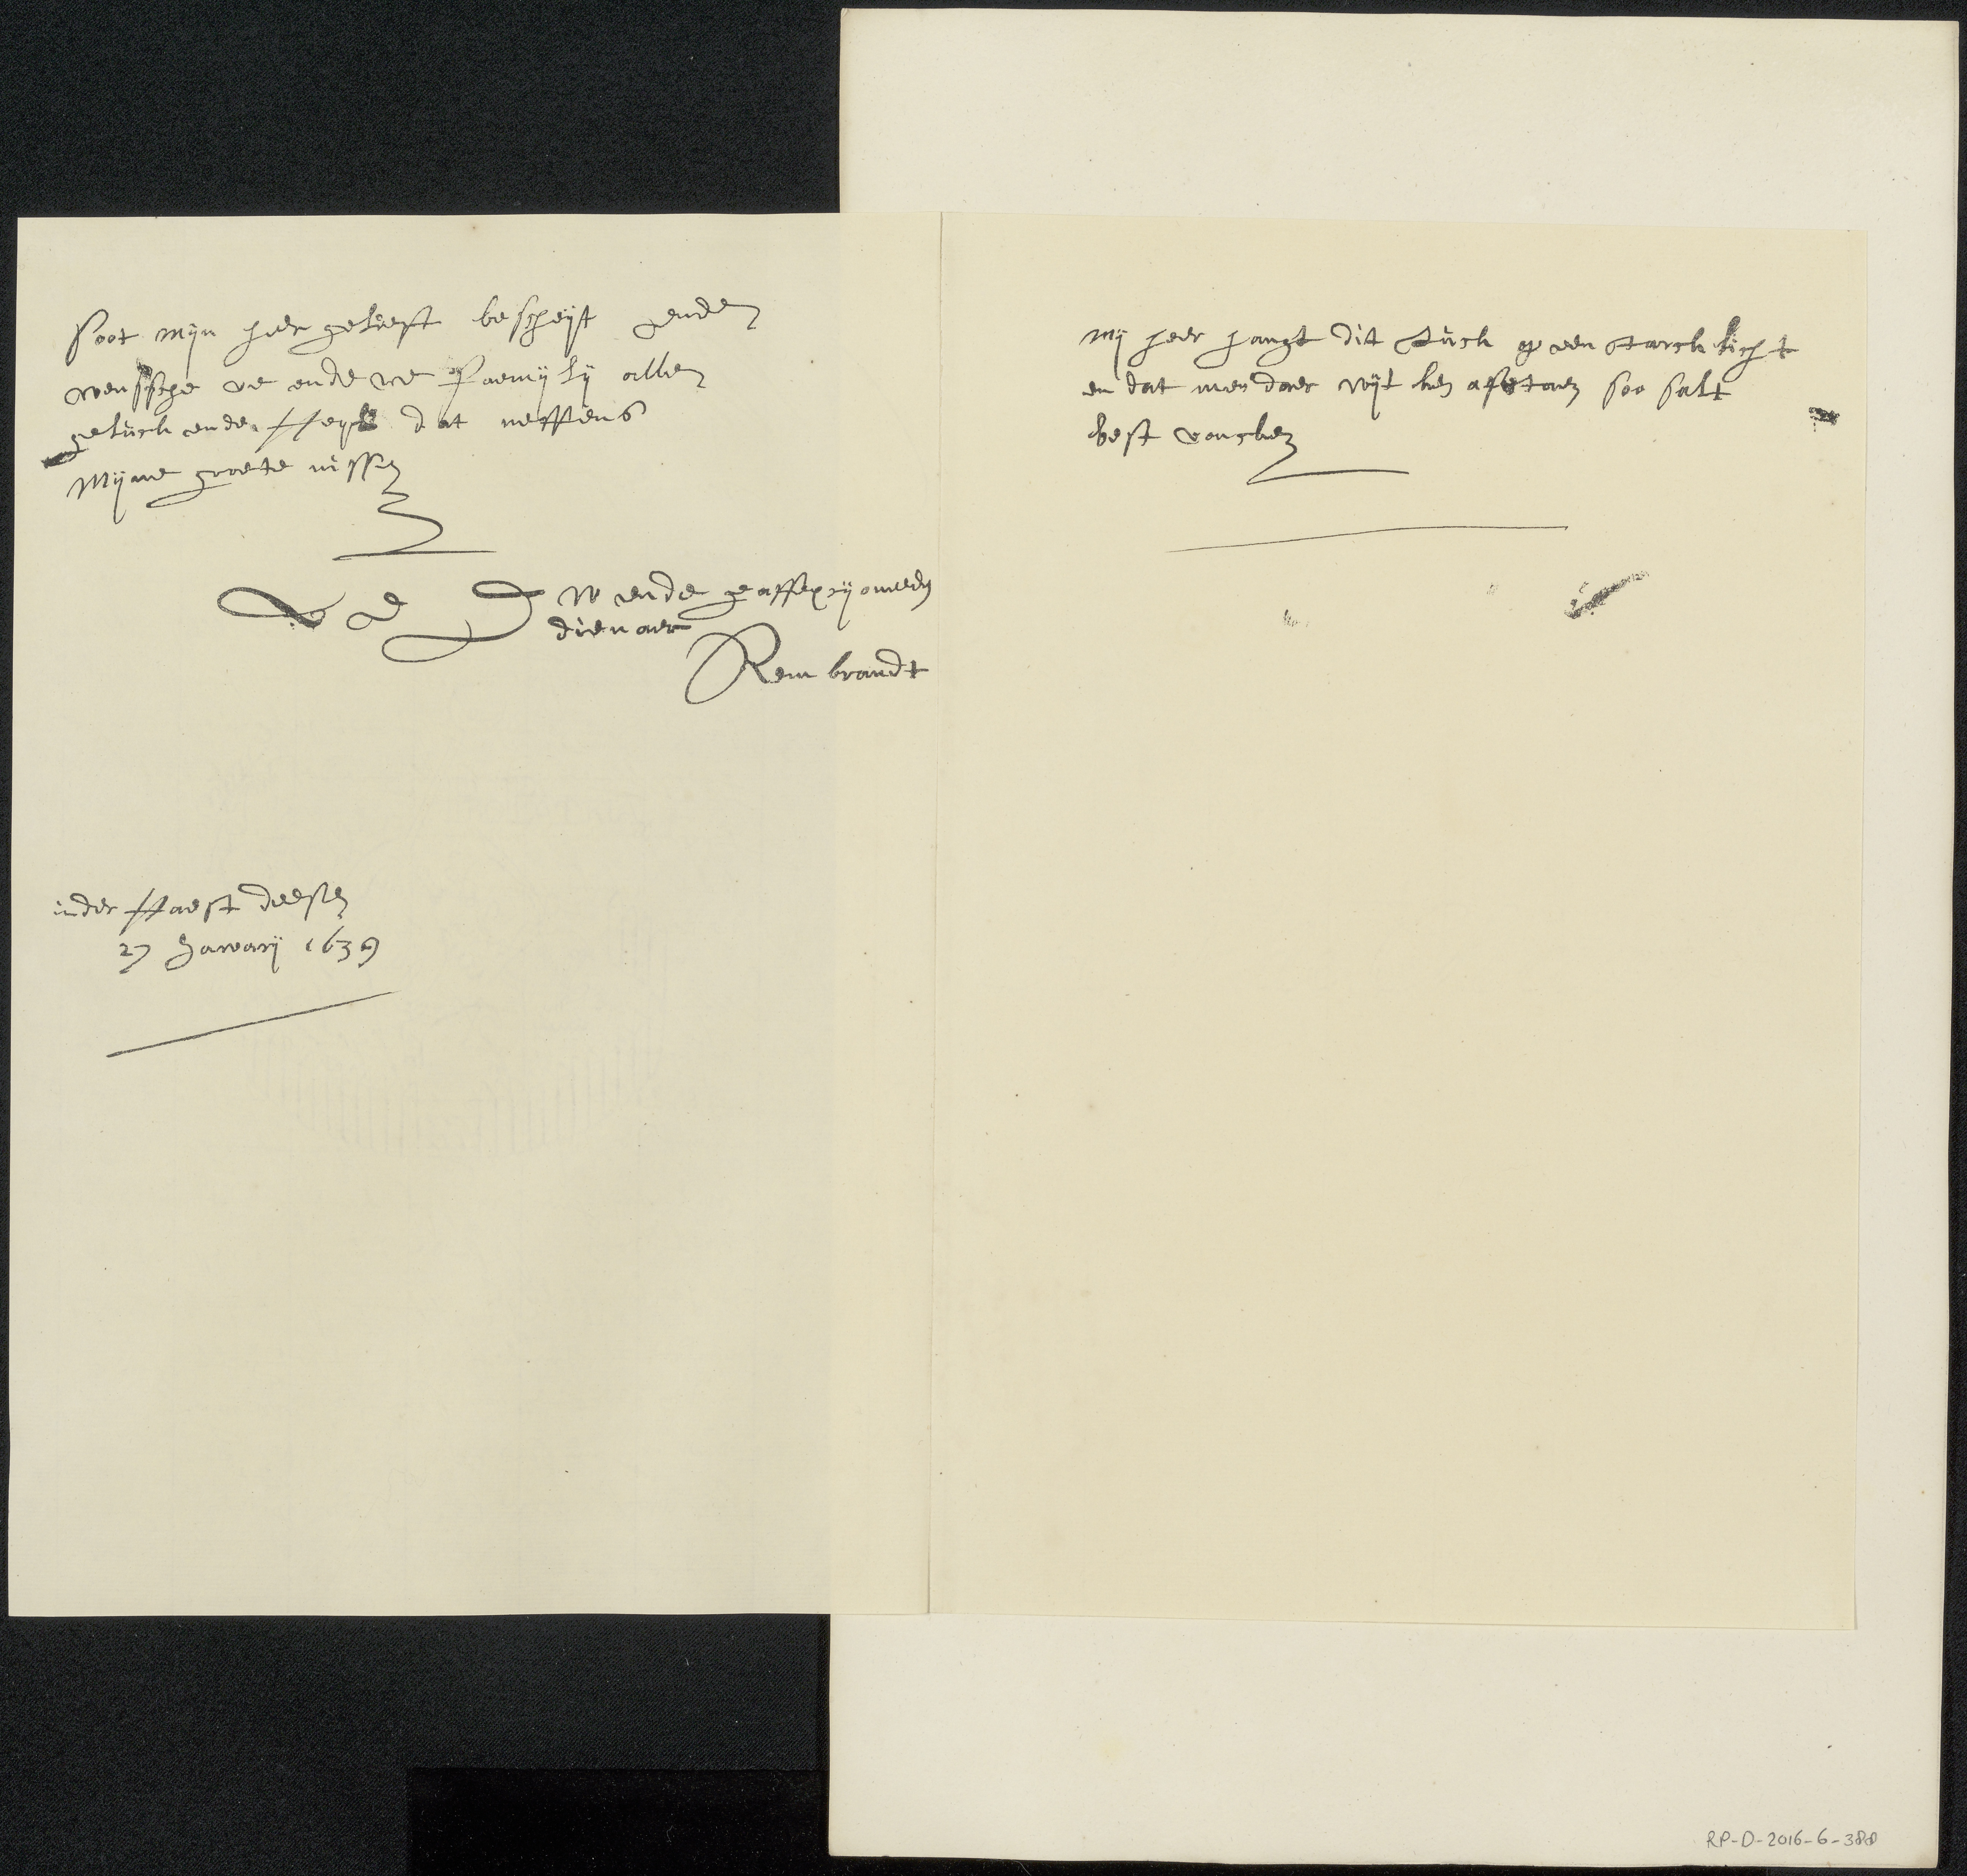 soot mijn heer gelieft beschijt ende
wenssche ue ende ue Faemijlij allen
gelück ende Heyl dat neffens
Mijne groete nissen
UE D W ende geaffexcijoneerden
dienaer
Rembrandt
inder Haest deesen
27 Januarij 1639
Mij heer hangt dit stück op een starck licht
en dat men daer wijt ken afstaen soo salt
best voncken
RP-D-2016-6-388